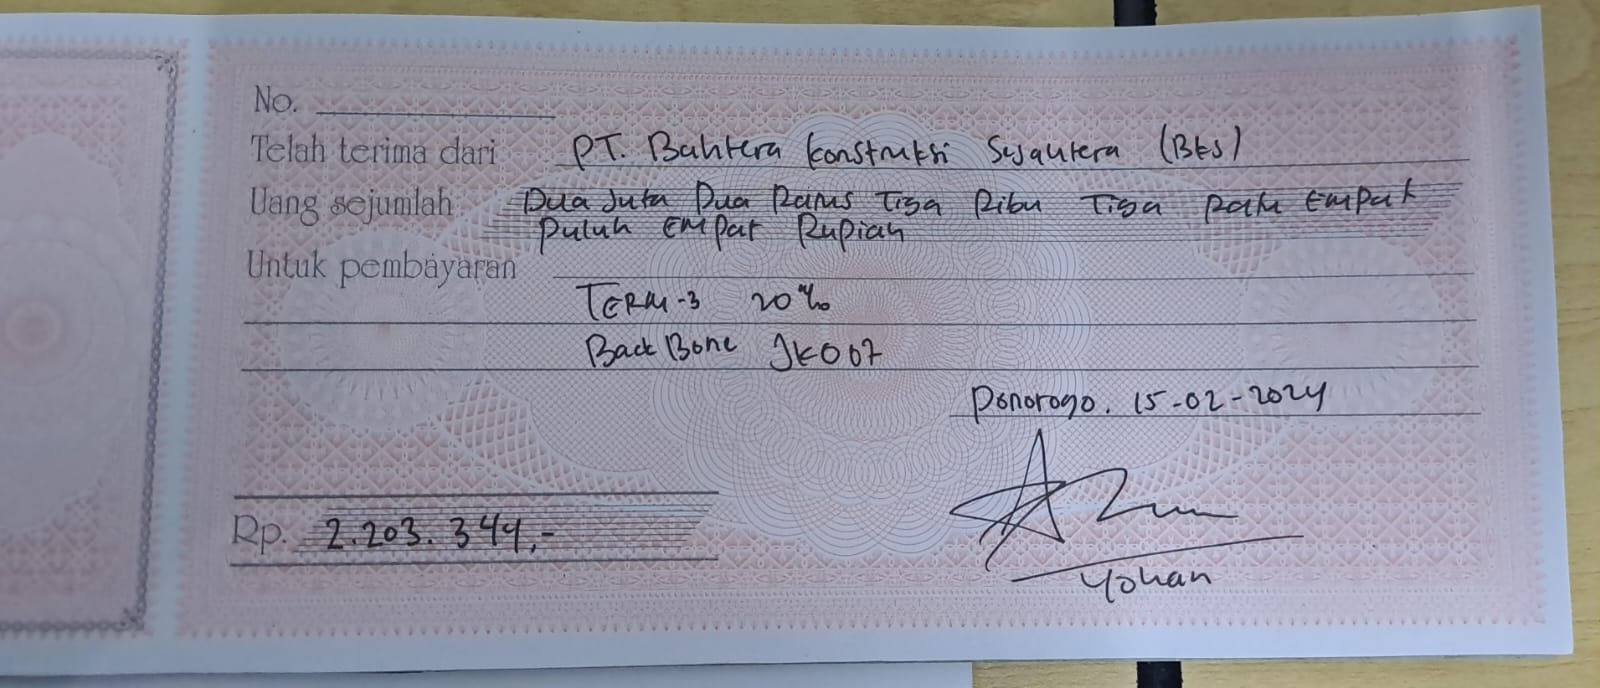 No.
Telah terima dari PT. Bahtera Konstruksi Sejahtera (BKS)
Uang sejumlah Dua Juta Dua Ratus Tiga Ribu Tiga Ratu Empat
Puluh Empat Rupiah
Untuk pembayaran
TERM-3 20%
Back Bone JK007
Ponorogo. 15-02-2024
Rp. 2.203.344,-
Yohan